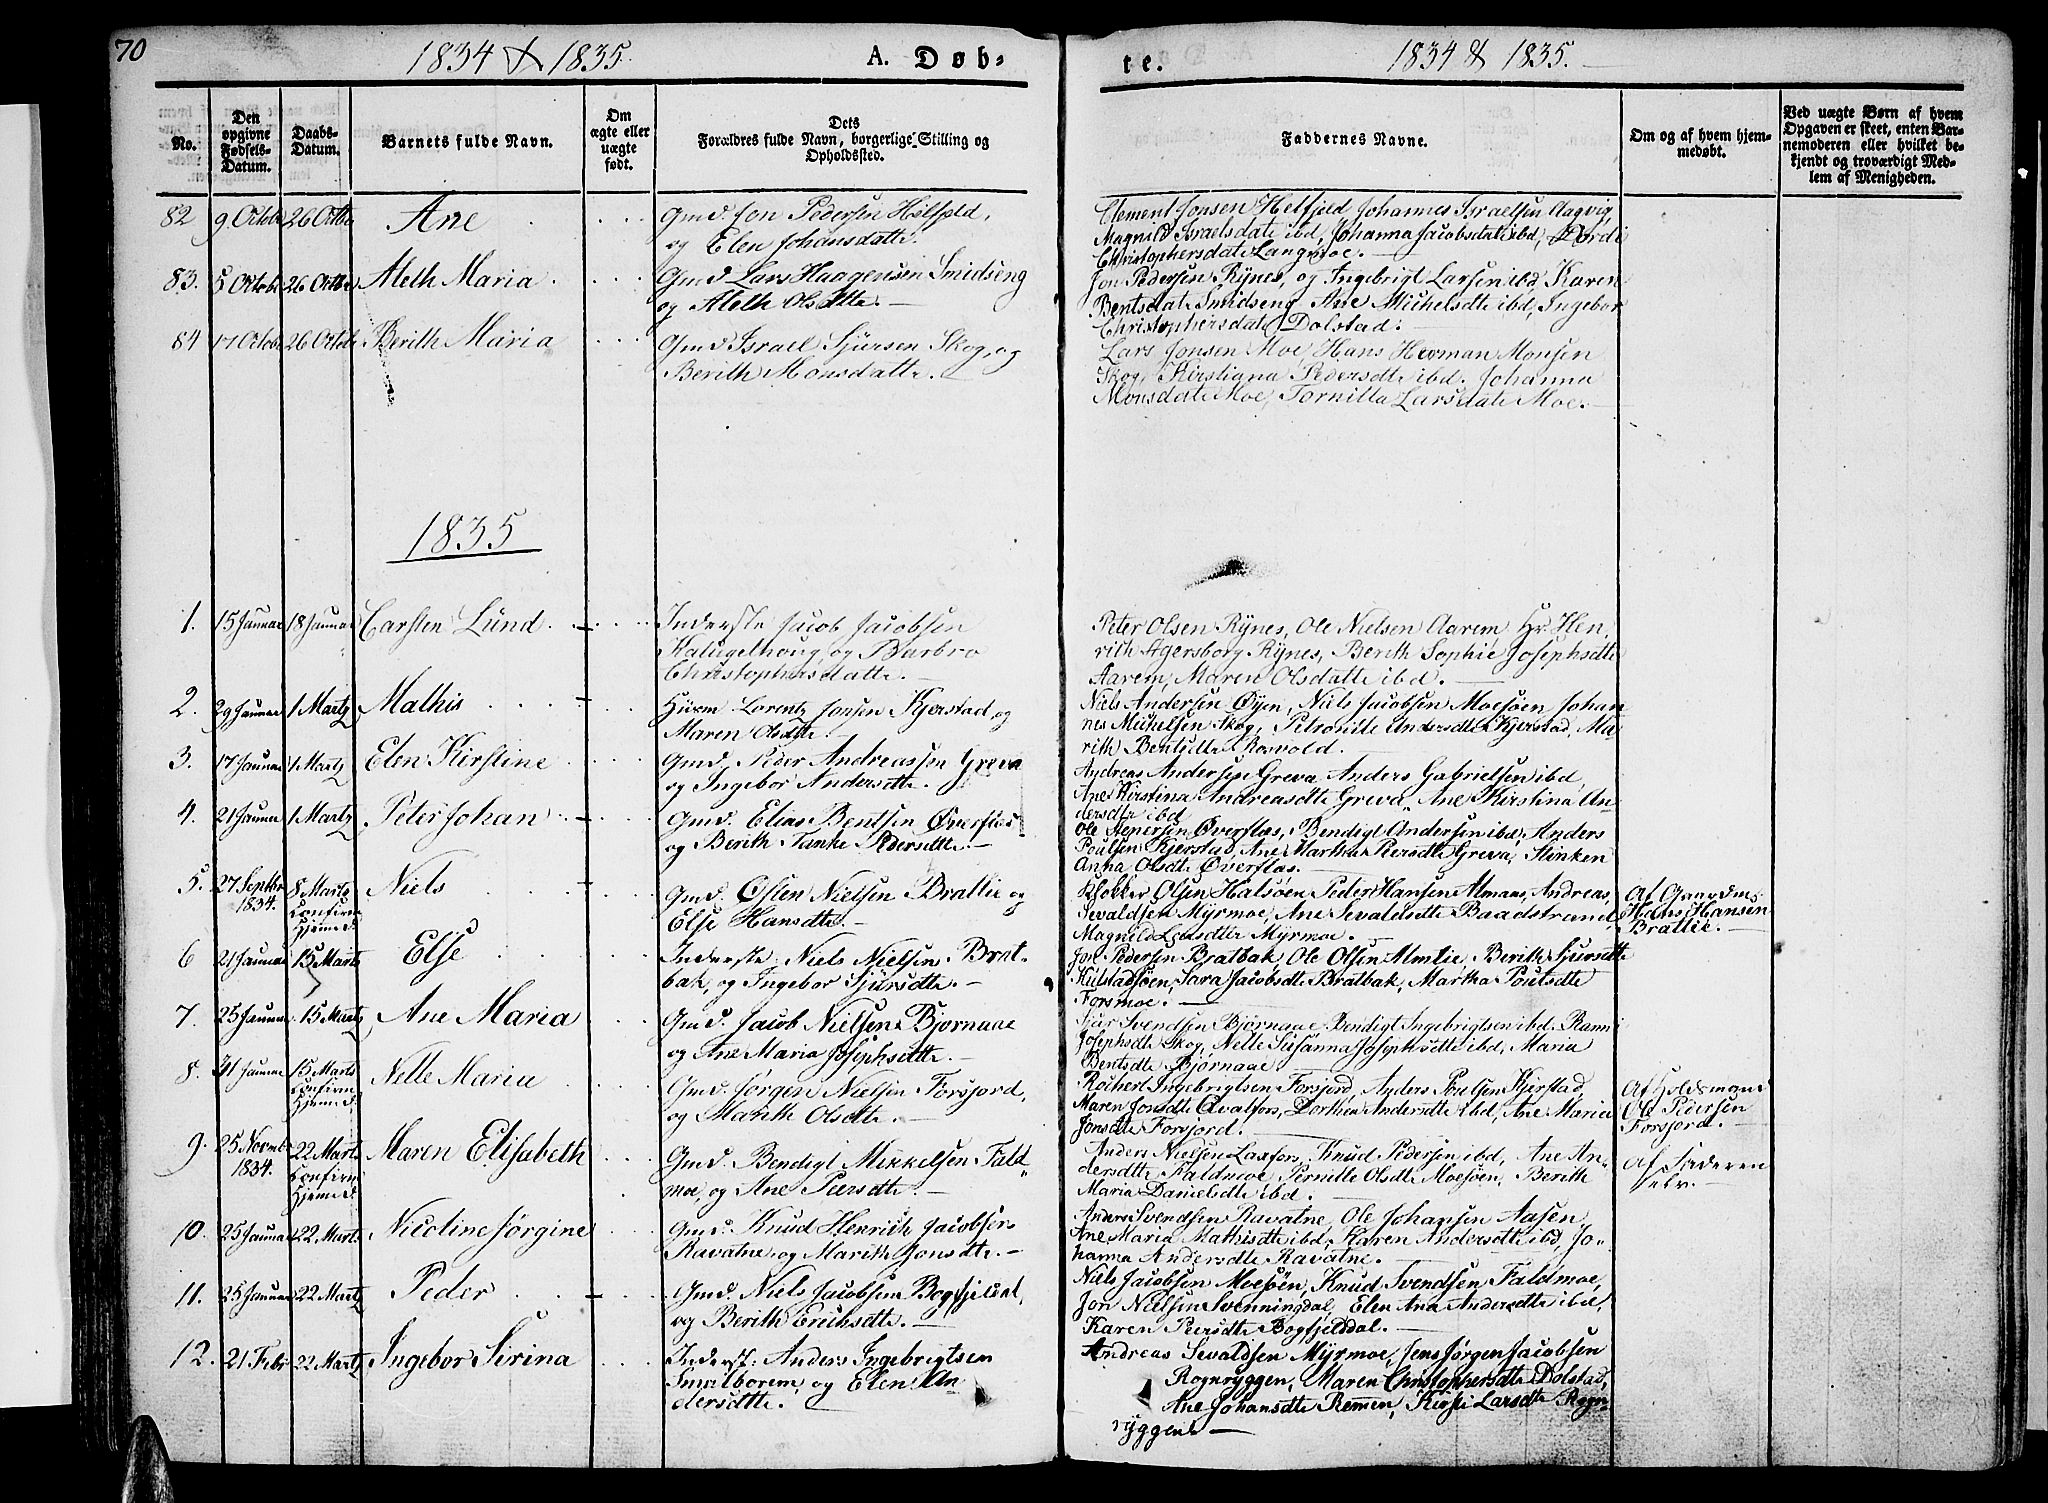 70
1834 & 1835.
A. Døb-
te.
1834 & 1835.
No.
Den opgivne Fødsels-Datum.
Daabs-Datum.
Barnets fulde Navn.
Om ægte eller uægte født.
Dets Forældres fulde Navn, borgerlige Stilling og Opholdssted.
Faddernes Navne.
Om og af hvem hjemmedøbt.
Ved uægte Børn af hvem Opgaven er skeet, enten Barnemoderen eller hvilket bekjendt og troværdigt Medlem af Menigheden.
82 9 Octobr 26 Octbr Ane
Gmd. Jon Pedersen Helfjeld,
og Elen Johansdatte.
Clement Jonsen Helfjeld, Johannes Israelsen Aagvig
Magnild Israelsdatte ibd, Johanna Jacobsdatte ibd, Dordi
Christophersdatte Langmoe.
83. 5 Octobr 26 Octbr Aleth Maria
Gmd Lars Haagensen Smidseng
og Aleth Olsdtte.
Jon Pedersen Rynes, og Ingebrigt Larsen ibd, Karen
Bentsdatte Smidseng Ane Michelsdtte ibd, Ingebor
Christophersdatte Dolstad.
84 17 Octobr 26 Octobr Berith Maria
Gmd Israel Sjursen Skog, og
Berith Monsdatte.
Lars Jonsen Moe, Hans Herman Monsen
Skog, Kirstiana Pedersdtte ibd. Johanna
Monsdatte Moe, Tornilla Larsdatte Moe.
1835
1. 15 Januar 18 Januar Carsten Lund
Inderste Jacob Jacobsen
Kalugelhoug og Barbro
Christophersdatte.
Peter Olsen Rynes, Ole Nielsen Aarem, Hr. Hen,
rith Agersborg Rynes, Berith Sophie Josephsdtte
Aarem, Maren Olsdatte ibd.
2. 29 Januar 1 Marty Mathis
Huem Lorentz Jonsen Kjerstad, og
Maren Olsdtte.
Niels Andersen Øyen, Niels Jacobsen Moesøen, Johan
nes Michelsen Skog, Petronile Andersdtte Kjerstad, Ma-
rith Bentsdtte
3. 17 Januar 1 Marty Elen Kirstine
Gmd. Peder Andreassen Greva
og Ingebor Andersdtte.
Andreas Andersen Greva, Anders Gabrielsen ibd,
Ane Kirstina Andreasdtte Greva, Ane Kirstina An-
dersdtte ibd
4. 21 Januar 1 Marty Peter Johan
Gmd. Elias Bentsen Øverflos
og Berith Tanke Pedersdtte.
Ole Stenersen Øverflas, Bendigt Andersen ibd, Anders
Poulsen Kjerstad, Ane Martha Peersdtte Greva, Stinken
Anna Olsdtte Øverflas.
5. 27 Septbr 1834. 8 Marts Confirm Hjemed. Niels
Gmd. Østen Nielsen Brattie og
Else Hansdtte.
Klokker Olsen Halsøen, Peder Hansen Almaas, Andreas
Sevaldsen Myrmoe, Ane Sevaldsdtte Baadstrand,
Magnild Larsdtte Myrmoe.
Af Gaardm:
Hans Hansen
Brattie.
6 21 Januar 15 Marts Else
Inderste: Niels Nielsen Brat-
bak, og Ingebor Sjursdtte.
Jon Pedersen Bratbak, Ole Olsen Almlie, Berith Sjursdtte
Kulstadsjøen, Sara Jacobsdtte Bratbak, Martha Poulsdtte
Forsmoe.
7. 25 Januar 15 Marty Ane Maria
Gmd. Jacob Nielsen Bjornaae
og Ane Maria Josephsdtte.
Sjur Svendsen Bjørnaae Bendigt Ingebrigtsen ibd. Ranni
Josephsdtte Skog, Nelle Susanna Josephsdtte ibd, Maria
Bentsdtte Bjørnaae
8. 31 Januar 15 Marts Confirm Hjemed. Nelle Maria
Gmd. Jørgen Nielsen Forsjord,
og Marith Olsdtte.
Rochert Ingebrigtsen Forsjord, Anders Poulsen Kjerstad,
Maren Jonsdtte Qvalfors, Dorthea Andersdtte ibd, Ane Maria
Jonsdtte Forsjord.
Af Holdsmand
Ole Pedersen
Forsjord.
9. 25 Novmbr 1834. 22 Marts Confirm Hjemed. Maren Elisabeth
Gmd. Bendigt Mikkelsen Fald-
moe, og Ane Peersdtte.
Anders Nielsen Laxfors, Knud Pedersen ibd, Ane An-
dersdtte Faldmoe, Pernille Olsdtte Moesøen, Berith
Maria Danielsdtte ibd.
Af Faderen
selv.
10. 25 Januar 22 Marts Nicoline Jørgine
Gmd. Knud Henrich Jacobsen
Ravatne, og Marith Jonsdtte.
Anders Svendsen Ravatne, Ole Johansen Aasen,
Ane Maria Mathisdtte ibd, Karen Andersdtte ibd, Jo-
hanna Andersdtte Ravatne.
11. 25 Januar 22 Marty Peder
Gmd. Niels Jacobsen Bogfjeldal,
og Berith Erichsdtte.
Niels Jacobsen Moesøen, Knud Svendsen Faldmoe,
Jon Nielsen Svenningdal, Elen Ana Andersdtte ibd,
Karen Peersdtte Bogfjelddal.
12. 21 Febr 22 Marty Ingebor Sirina
Inderst: Anders Ingebrigtsen
Smaalborem, og Elen An-
dersdtte.
Andreas Sevaldsen Myrmoe, Jens Jørgen Jacobsen
Rognryggen, Maren Christophersdtte Dolstad,
Ane Johansdtte Remen, Kirsti Larsdtte Rogn-
ryggen